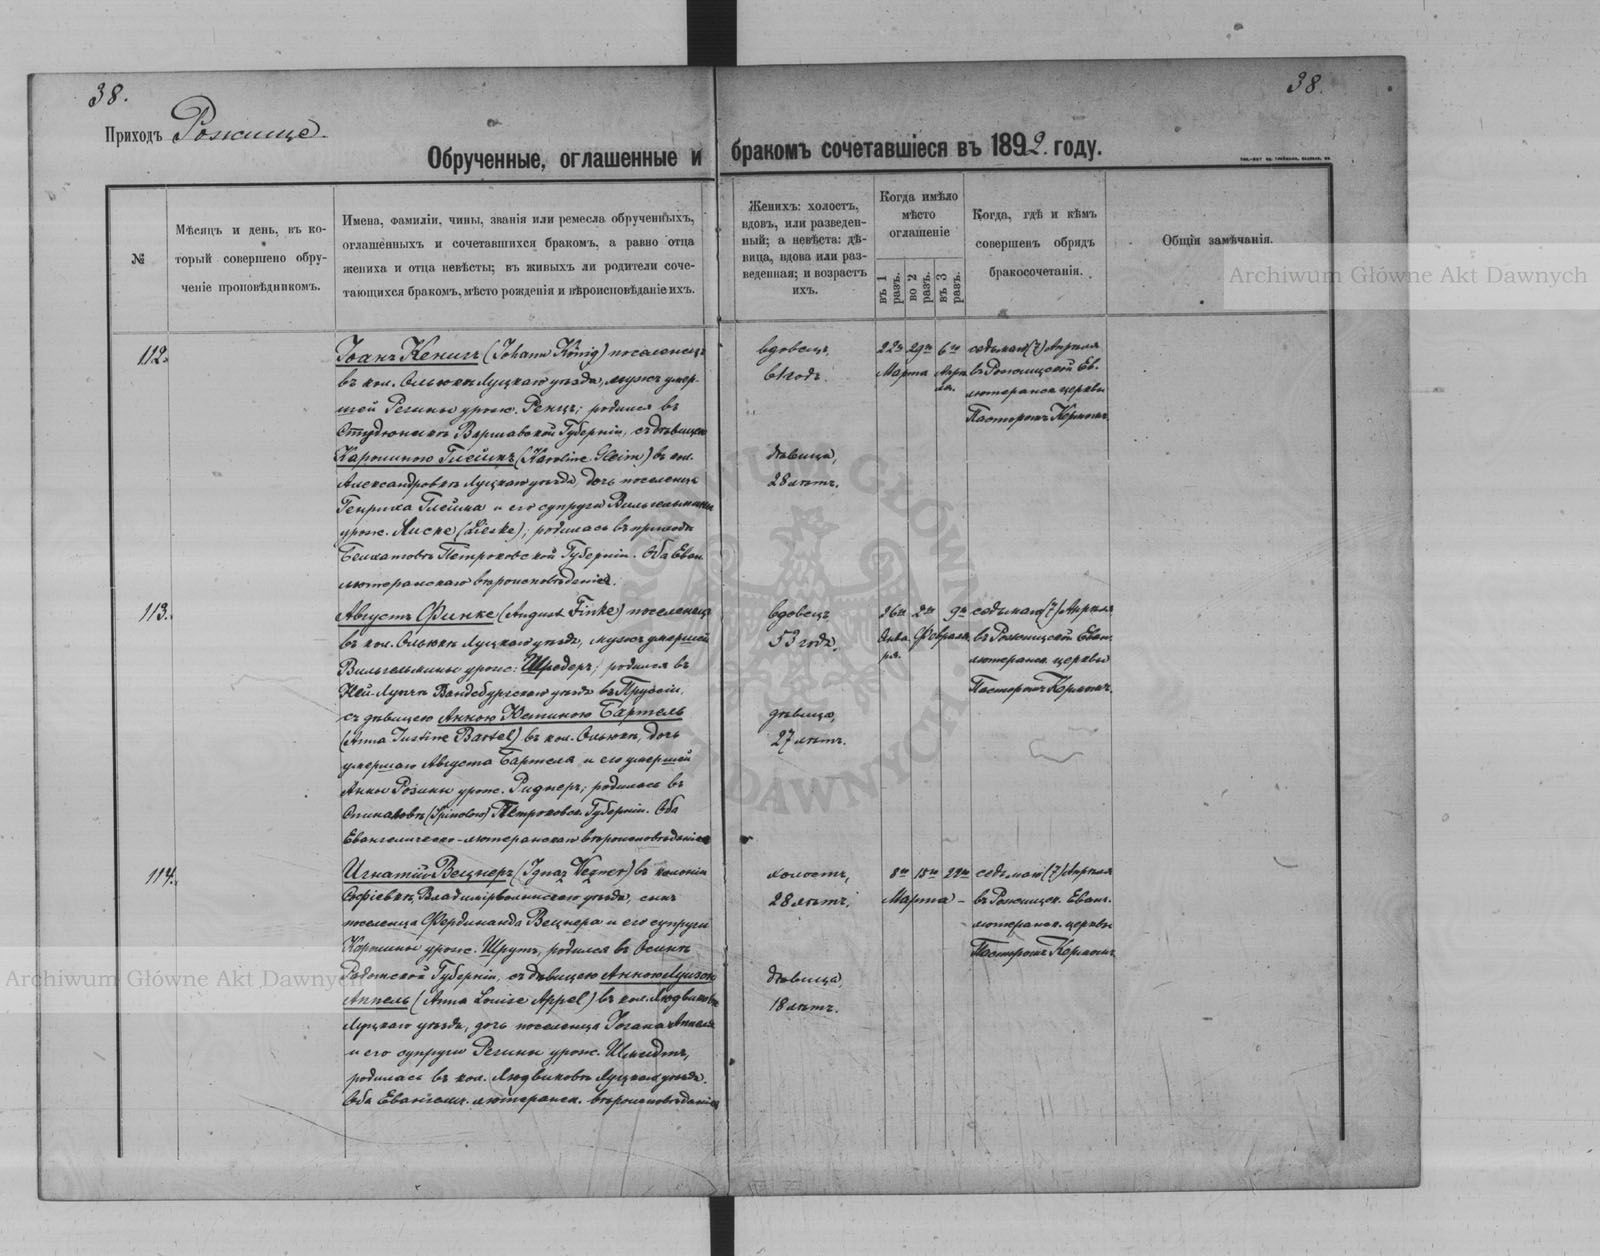 38.
38.
Приходъ Рожище.
Обрученные, оглашенные и бракомъ сочетавшіеся въ 1892. году.
№
Мѣсяцъ и день, въ ко-
торый совершено обру-
ченіе проповѣдникомъ.
Имена, фамиліи, чины, званія или ремесла обрученныхъ,
оглашенныхъ и сочетавшихся бракомъ, а равно отца
жениха и отца невѣсты; въ живыхъ ли родители соче-
тающихся бракомъ, мѣсто рожденія и вѣроисповѣданіе ихъ.
Женихъ: холостъ,
вдовъ, или разведен-
ный; а невѣста: дѣ-
вица, вдова или раз-
веденная; и возрастъ
ихъ.
Когда имѣло
мѣсто
оглашеніе
въ 1
разъ.
во 2
разъ.
въ 3
разъ.
Когда, гдѣ и кѣмъ
совершенъ обрядъ
бракосочетанія.
Общія замѣчанія.
Archiwum Główne Akt Dawnych
112.
Іоанъ Кенигъ (Johann König) поселенецъ
въ кол. Олыкѣ Луцкаго уѣзда, мужъ умер-
шей Регины урож. Ренцъ; родился въ
Варшавской Губерніи, съ дѣвицею
Каролиною Глеймъ (Karoline Gleim) въ кол.
Александровкѣ Луцкаго уѣзда, дочь поселенца
Генриха Глейма и его супруги Вильгельмины
урож. Лиске (Lieske); родилась въ приходѣ
Белхатовъ Петроковской Губерніи. Оба Еван.
лютеранскаго вѣроисповѣданія.
вдовецъ,
61 годъ.
дѣвица,
28 лѣтъ.
22го 29го 6го
Марта Апрѣ
ля.
седьмаго (7) Апрѣля
въ Рожищской Ев.
лютеранск. церкви
Пасторомъ Кермомъ.
113.
Августъ Финке (August Finke) поселенецъ
въ кол. Олыкѣ Луцкаго уѣзда, мужъ умершей
Вильгельмины урож: Шредеръ; родился въ
уѣзда въ Пруссіи,
съ дѣвицею Анною Юстиною Бартель
(Anna Justine Bartel) въ кол. Олыкѣ, дочь
умершаго Августа Бартеля и его умершей
Анны Розины урож. Риднеръ; родилась въ
(Spinolow) Петроковск. Губерніи. Оба
Евангелическо-лютеранскаго вѣроисповѣданія
вдовецъ
53 года.
дѣвица,
27 лѣтъ.
26го 2го 9го
Янва Февраля.
ря.
седьмаго (7) Апрѣля
въ Рожищской Еван.
лютеранск. церкви
Пасторомъ Кермомъ.
114.
Игнатій Вецнеръ (Ignaz Vezner) въ колоніи
Софіевкѣ, Владимірволынскаго уѣзда, сынъ
поселенца Фердинанда Вецнера и его супруги
Каролины урож. Шрутъ, родился въ
Радомской Губерніи, съ дѣвицею Анною Луизою
Аппель (Anna Louise Appel) въ кол. Людвиковкѣ
Луцкаго уѣзда, дочь поселенца Іогана Аппеля
и его супруги Регины урож. Шмидтъ,
родилась въ кол. Людвиковкѣ Луцкаго уѣзда.
Оба Евангелич. лютеранск. вѣроисповѣданія
холостъ,
28 лѣтъ;
дѣвица,
18 лѣтъ.
8го 15го 22го
Марта -
седьмаго (7) Апрѣля
въ Рожищск. Еванг.
лютеранск. церкви
Пасторомъ Кермомъ.
Archiwum Główne Akt Dawnych
ARCHIWUM GŁÓWNE AKT DAWNYCH